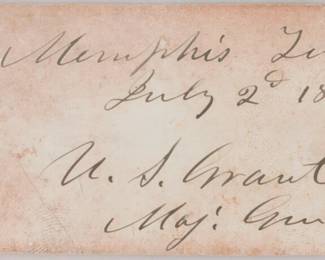 Memphis Te
July 2d 18
U. S. Grant
Maj. Gen